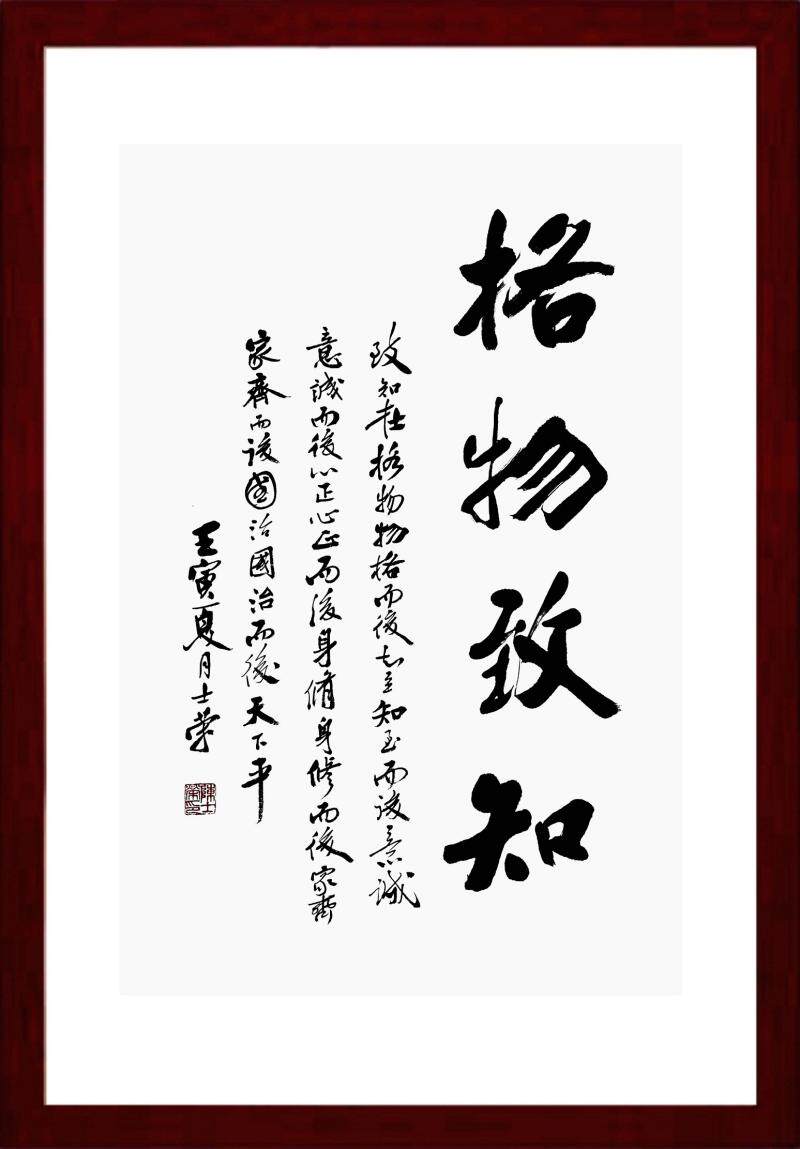 格物致知
致知在格物物格而後知至知至而後意誠
意誠而後心正心正而後身脩身修而後家齊
家齊而後國治國治而後天下平
壬寅夏月士榮
陳士榮印